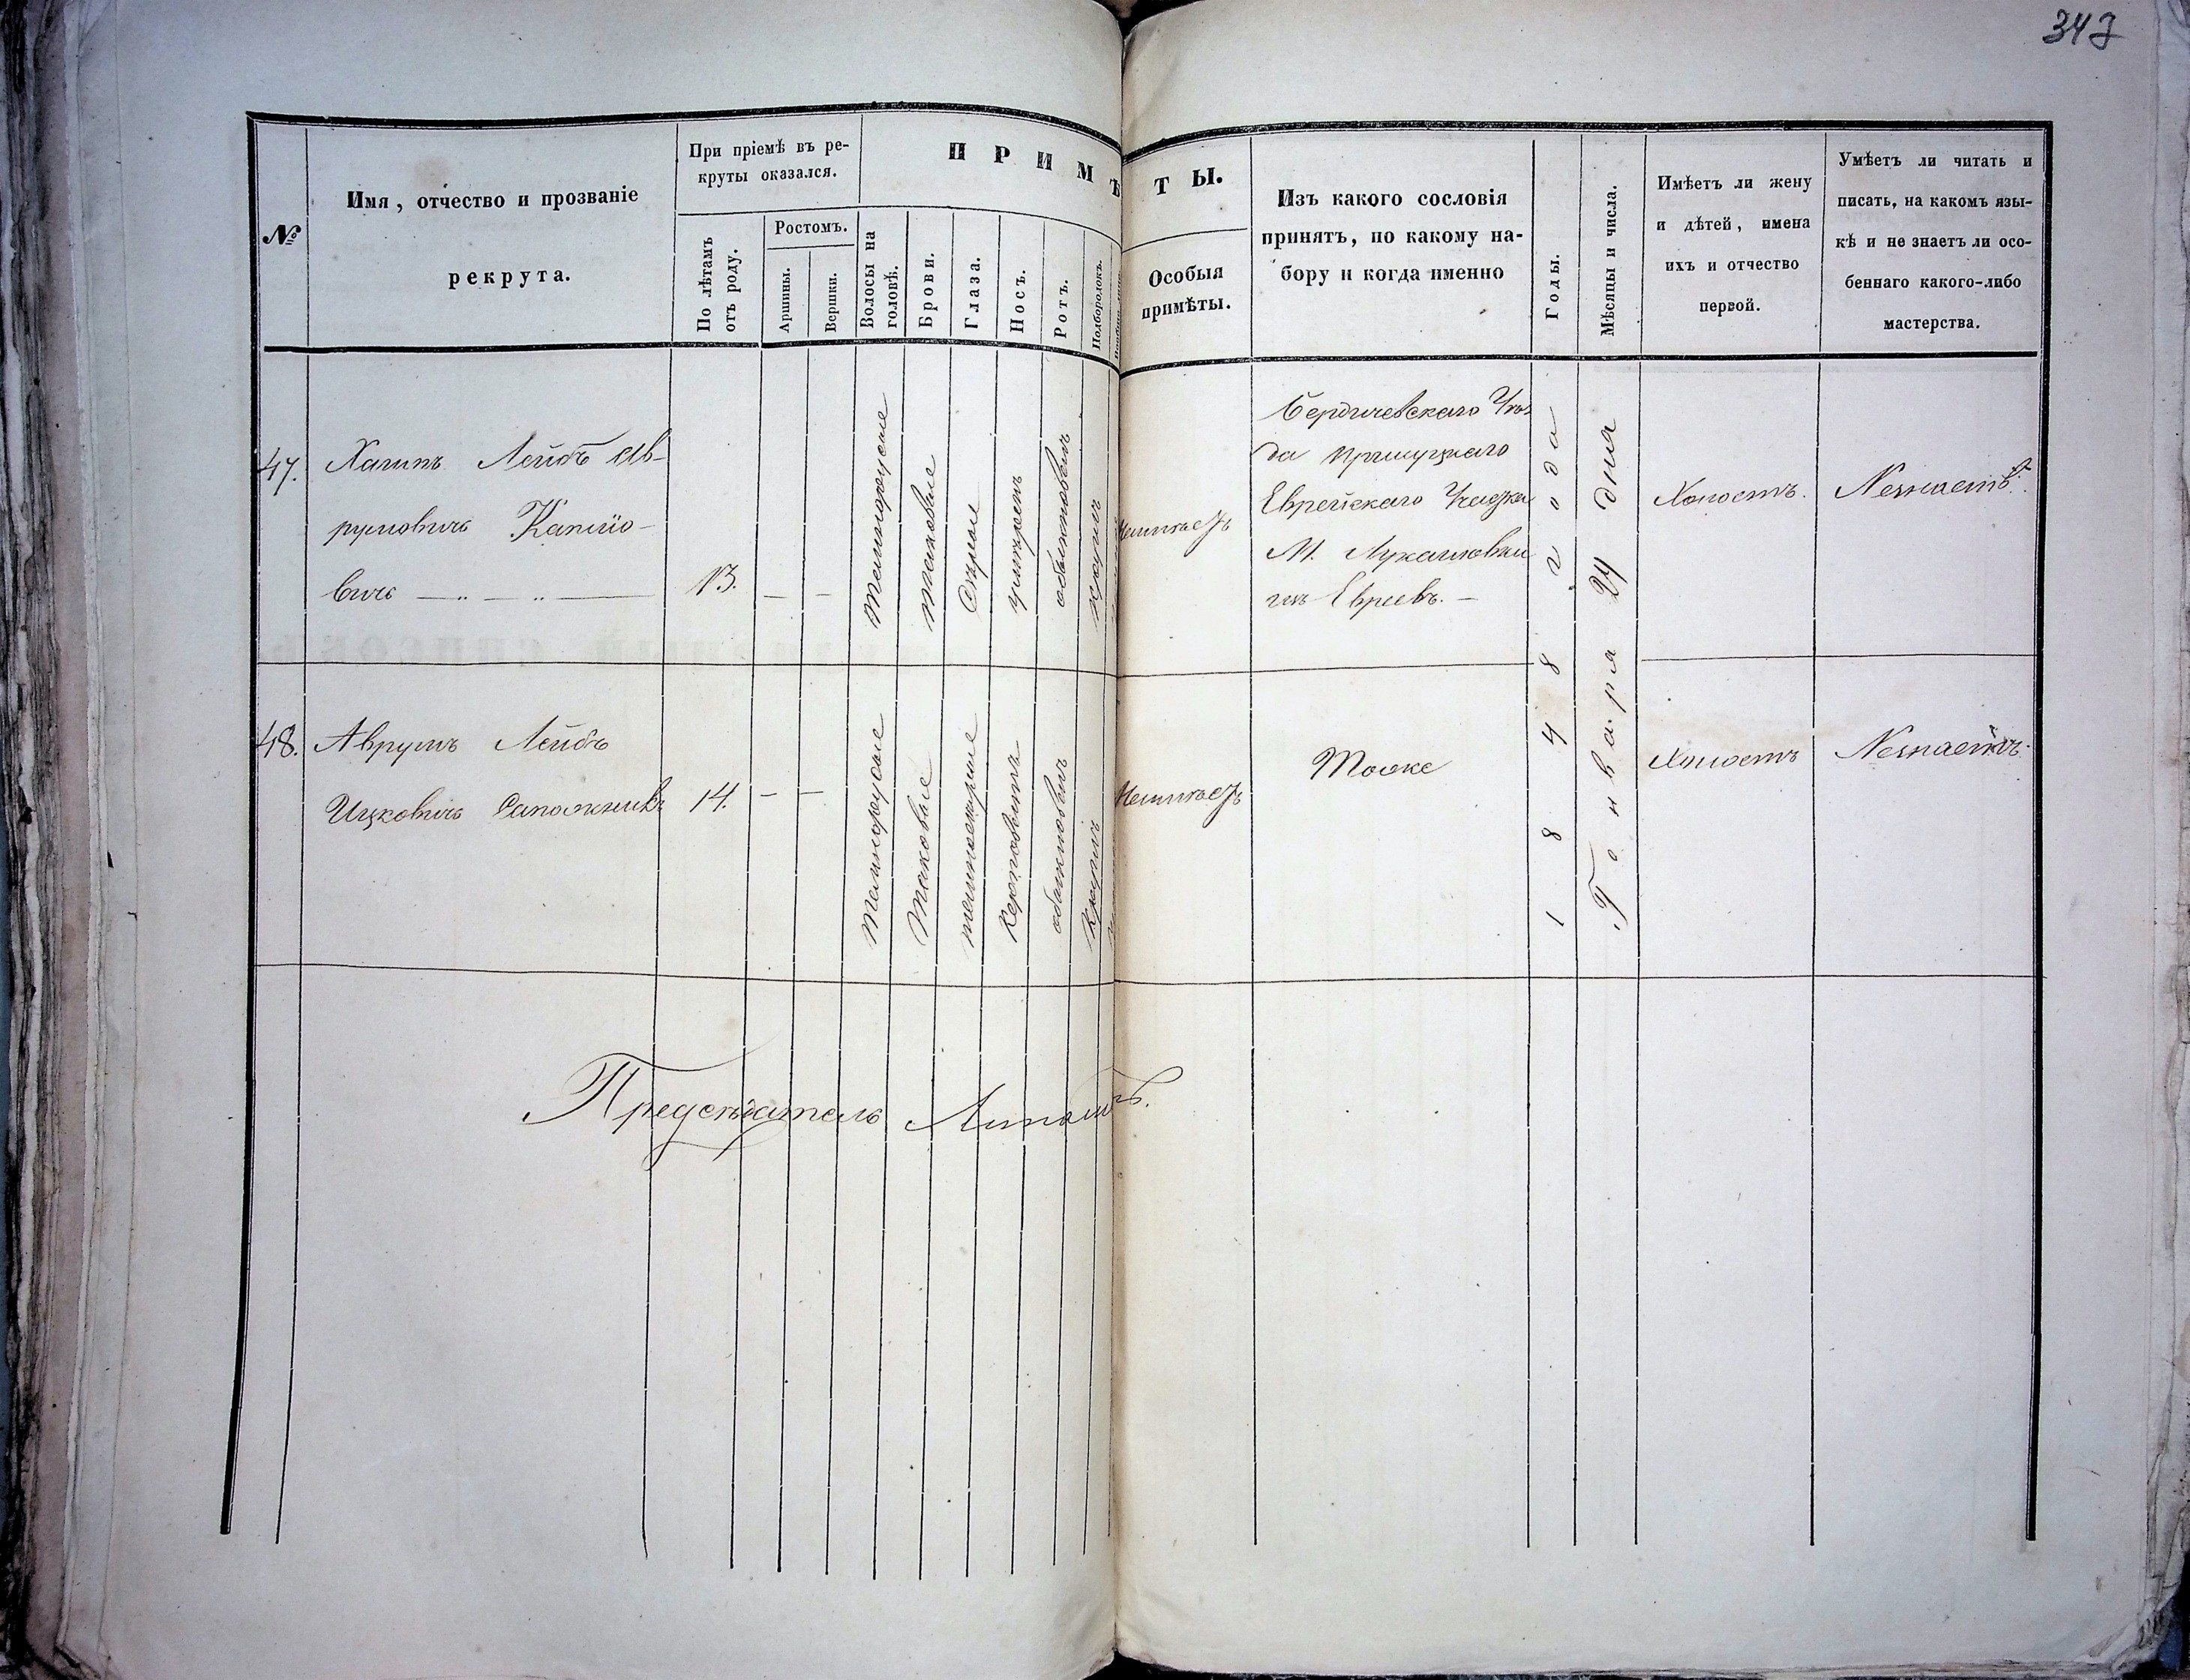 347
№
Имя, отчество и прозваніе
рекрута.
При пріемѣ въ ре-
круты оказался.
По лѣтамъ
отъ роду.
Ростомъ.
Аршины.
Вершки.
ПРИМѢ
ТЫ.
Волосы на
головѣ.
Брови.
Глаза.
Носъ.
Ротъ.
Подбородокъ.
Особыя
примѣты.
Изъ какого сословія
принятъ, по какому на-
бору и когда именно
Годы.
Мѣсяцы и числа.
Имѣетъ ли жену
и дѣтей, имена
ихъ и отчество
первой.
Умѣетъ ли читать и
писать, на какомъ язы-
кѣ и не знаетъ ли осо-
беннаго какого-либо
мастерства.
47.
Хаимъ Лейбъ Ав-
румовичъ
вичъ
13.
— —
темнорусые
таковые
Сѣрые
умѣрен
обыкновен
круглъ
Неимѣетъ
Бердичевскаго Уѣз
да
Еврейскаго Участка
М.
изъ Евреевъ. —
1848 года
Генваря 24 дня
Холостъ.
Незнаетъ.
48.
Аврумъ Лейбъ
Ицковичъ Сапожникъ
14.
— —
темнорусые
таковые
темносѣрые
обыкновен
кругл
Неимѣетъ
Тоже
Холостъ
Незнаетъ.
Предсѣдатель